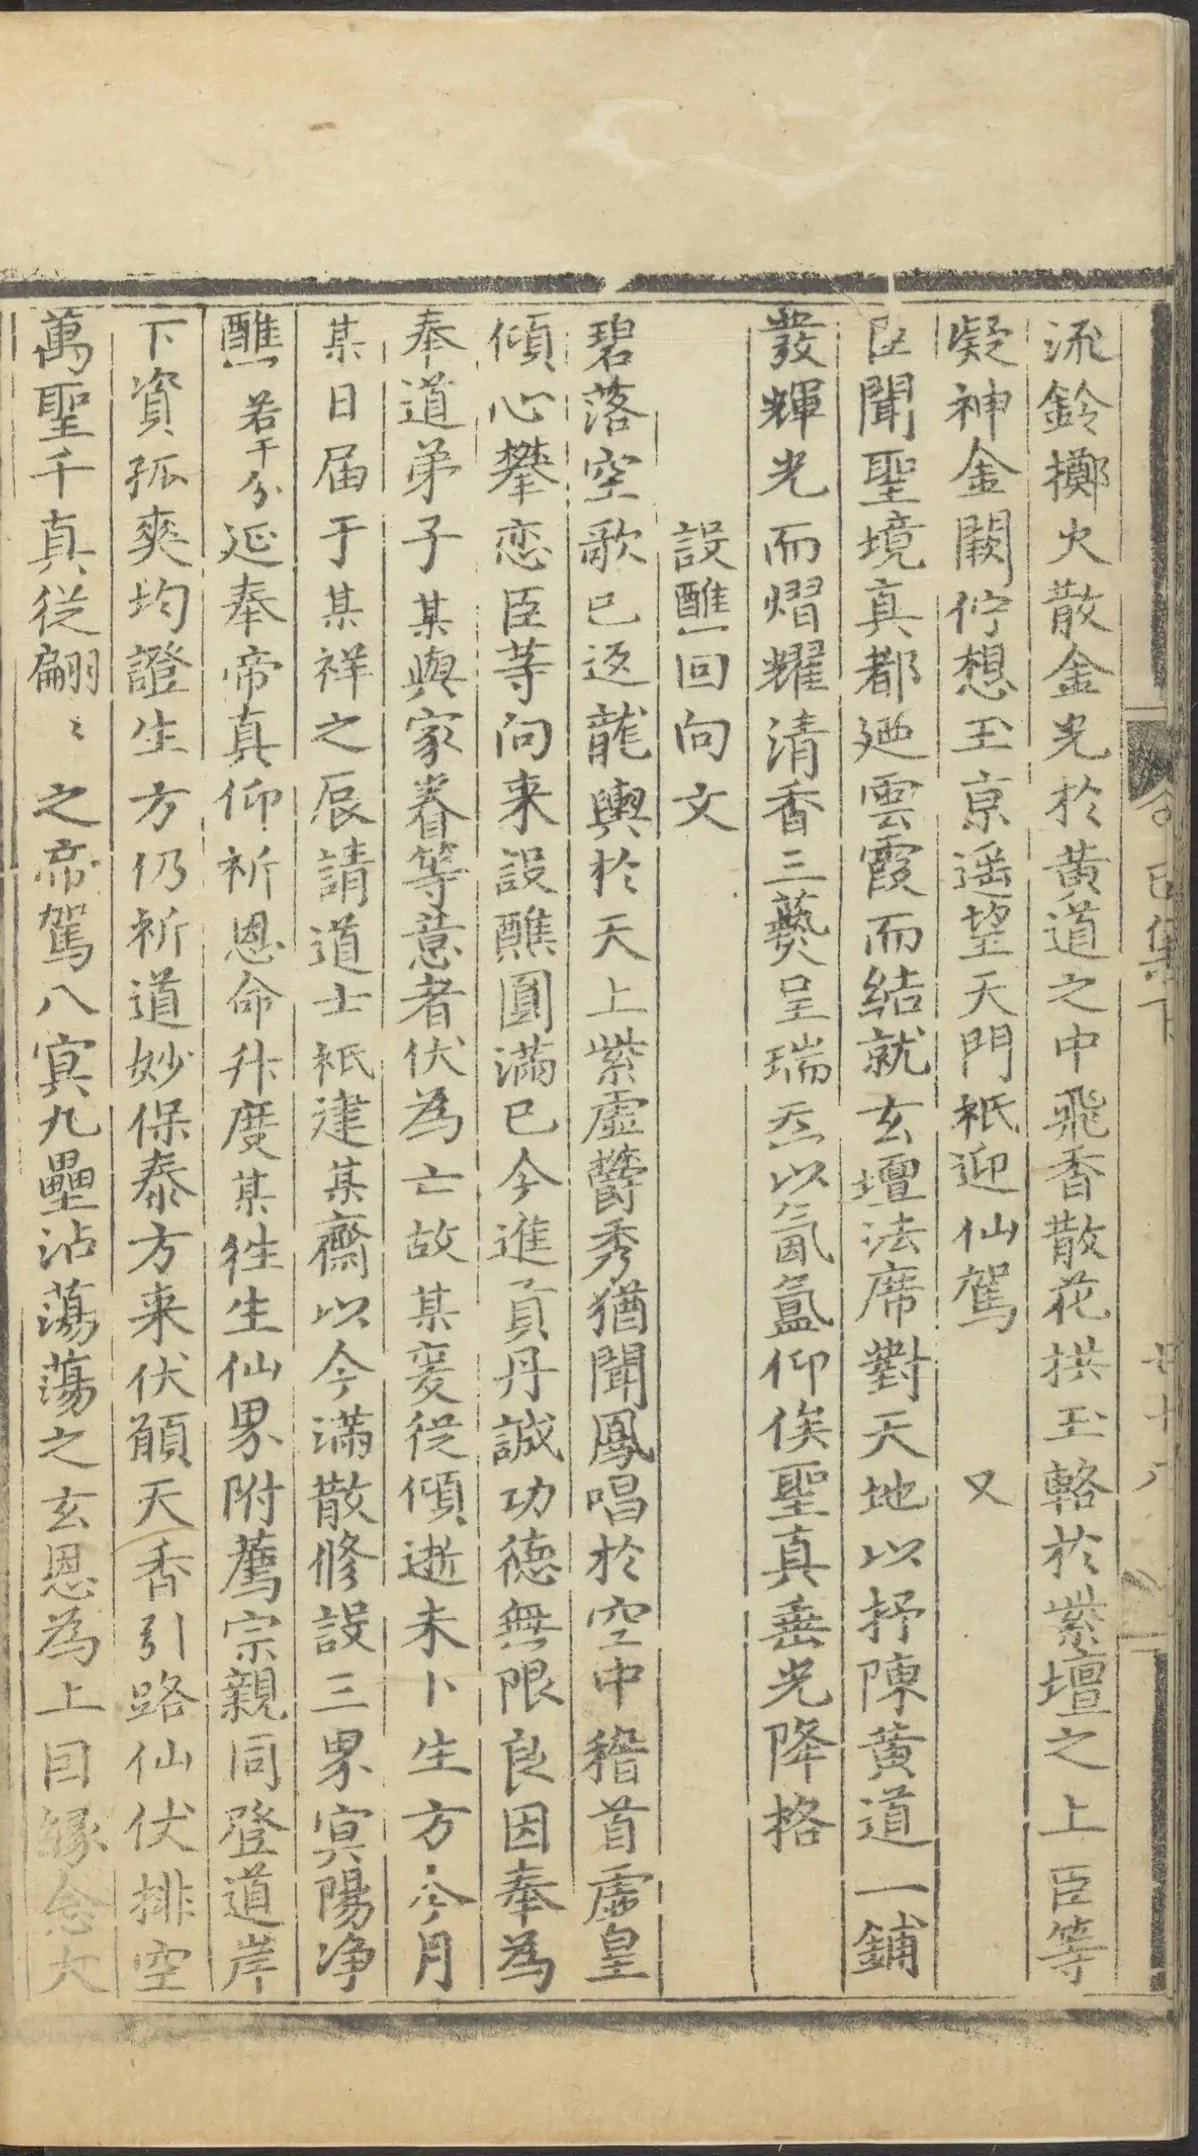 流鈴擲火散金光於黃道之中飛香散花拱玉輅於紫壇之上臣等
凝神金闕佇想玉京遥望天門祇迎仙駕 又
臣聞聖境真都廼雲霞而結就玄壇法席對天地以抒陳黃道一鋪
發輝光而熠耀清香三爇呈瑞炁以氤氳仰俟聖真垂光降格
設醮回向文
碧落空歌已返龍輿於天上紫虛欝秀猶聞鳳唱於空中稽首虛皇
傾心攀恋臣等向来設醮圓滿已今進貟丹誠功德無限良因奉為
奉道弟子某與家眷等意者伏為亡故某爰従傾逝未卜生方今月
某日届于某祥之辰請道士祇建某齋以今滿散修設三界冥陽净
醮若干分延奉帝真仰祈恩命升度某徃生仙界附薦宗親同登道岸
下資孤爽均證生方仍祈道妙保泰方来伏願天香引路仙伏排空
萬聖千真従翩〻之帝駕八冥九壘沾蕩蕩之玄恩為上因緣念大
集下